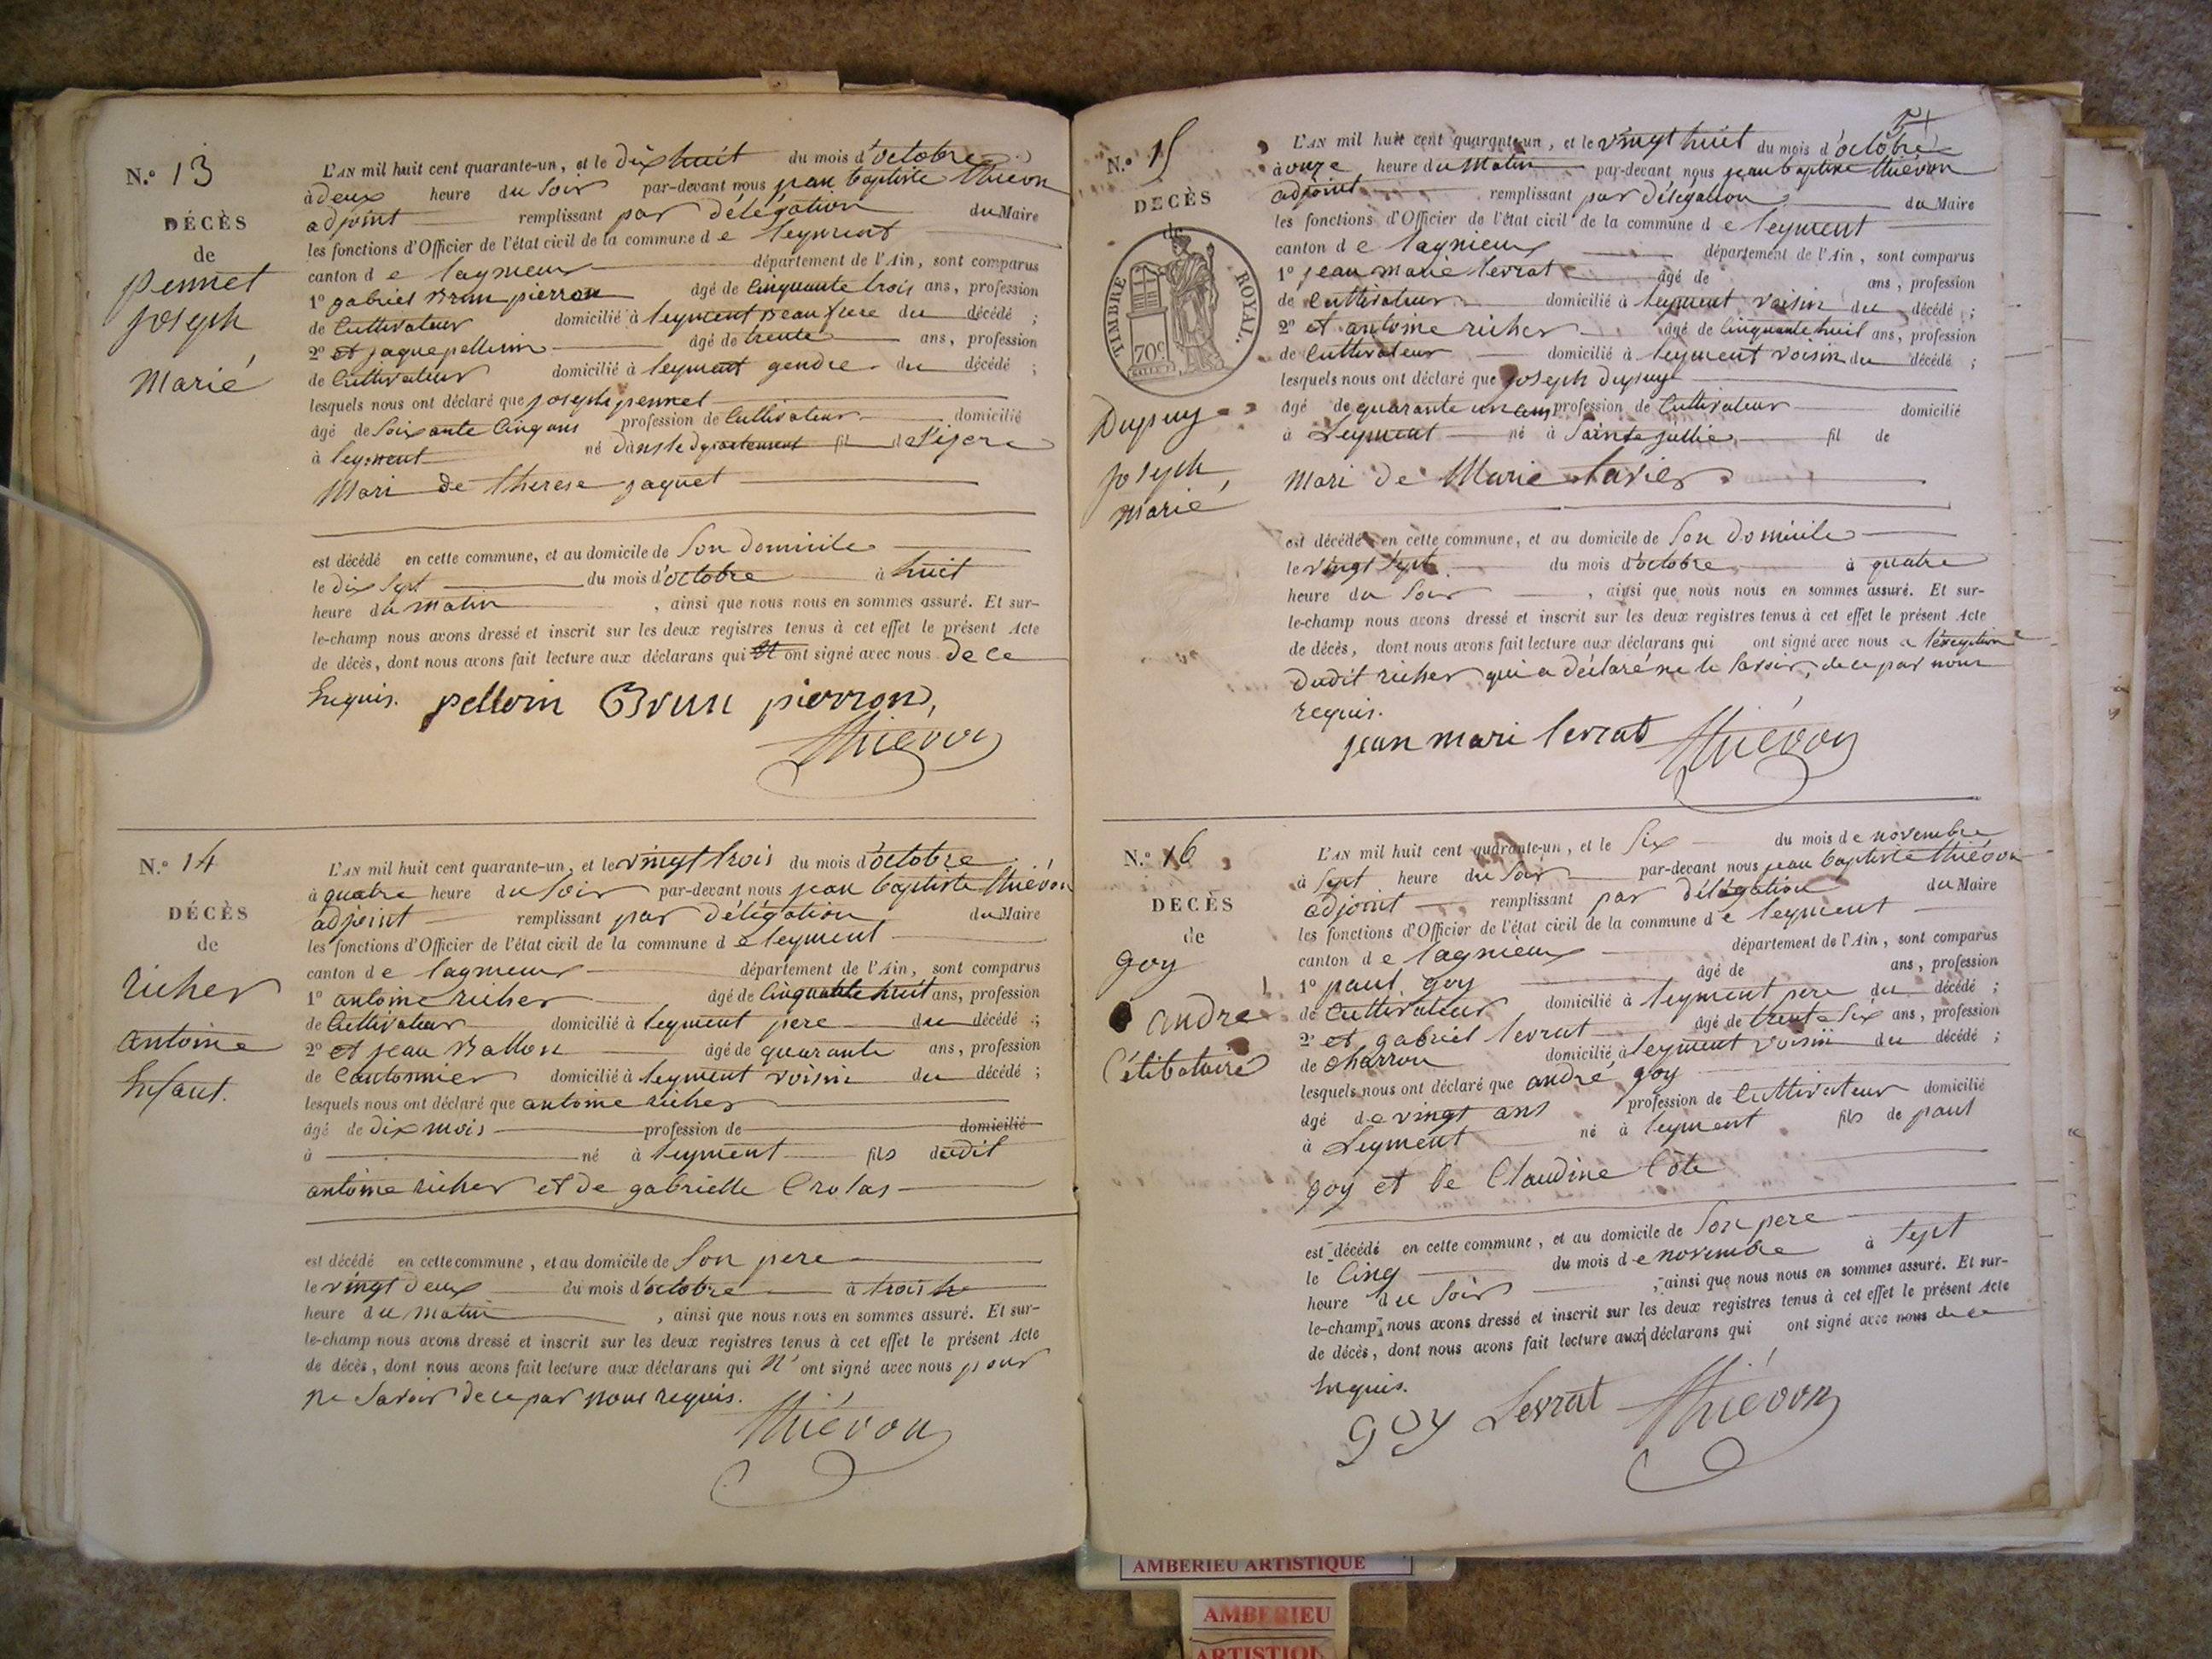 N.o 13
DÉCÈS
de
pennet
joseph
marié
L'AN mil huit cent quarante-un, et le dix huit du mois d'octobre
à deux heure du soir par-devant nous jean baptiste thiévon
adjoint remplissant par délégation du Maire
les fonctions d'Officier de l'état civil de la commune de leyment
canton de lagnieux département de l'Ain, sont comparus
1o gabriel Brun pierron âgé de Cinquante trois ans, profession
de Cultivateur domicilié à leyment Beau frere du décédé ;
2o et jaque pellerin âgé de trente ans, profession
de Cultivateur domicilié à leyment gendre du décédé ;
lesquels nous ont déclaré que joseph pennet
âgé de soixante Cinq ans profession de Cultivateur domicilié
à leyment né dans le departement fil de l'isere
Mari de therese jaquet
est décédé en cette commune, et au domicile de Son domicile
le dix sept du mois d'octobre à huit
heure du matin, ainsi que nous nous en sommes assuré. Et sur-
le-champ nous avons dressé et inscrit sur les deux registres tenus à cet effet le présent Acte
de décès, dont nous avons fait lecture aux déclarans qui ont signé avec nous de ce
Enquis. pellerin Brun pierron
thiévon
N.o 14
DÉCÈS
de
richer
antoine
Enfant.
L'AN mil huit cent quarante-un, et le vingt trois du mois d'octobre
à quatre heure du soir par-devant nous jean baptiste thiévon
adjoint remplissant par délégation du Maire
les fonctions d'Officier de l'état civil de la commune de leyment
canton de lagnieux département de l'Ain, sont comparus
1o antoine richer âgé de Cinquante huit ans, profession
de Cultivateur domicilié à leyment pere du décédé ;
2o et jean Ballon âgé de quarante ans, profession
de Cantonnier domicilié à leyment voisin du décédé ;
lesquels nous ont déclaré que antoine richer
âgé de dix mois profession de domicilié
à né à leyment fils dudit
antoine richer et de gabrielle Crolas
est décédé en cette commune, et au domicile de Son pere
le vingt deux du mois d'octobre à trois
heure du matin, ainsi que nous nous en sommes assuré. Et sur-
le-champ nous avons dressé et inscrit sur les deux registres tenus à cet effet le présent Acte
de décès, dont nous avons fait lecture aux déclarans qui n'ont signé avec nous pour
ne savoir de ce par nous requis.
thiévon
N.o 15
DÉCÈS
de
TIMBRE ROYAL.
70c.
Dupuy
joseph
marié
L'AN mil huit cent quarante-un, et le vingt huit du mois d'octobre
à onze heure du matin par-devant nous jean baptiste thiévon
adjoint remplissant par délégation du Maire
les fonctions d'Officier de l'état civil de la commune de leyment
canton de lagnieux département de l'Ain, sont comparus
1o jean marie levrat âgé de ans, profession
de Cultivateur domicilié à leyment voisin du décédé ;
2o et antoine richer âgé de Cinquante huit ans, profession
de Cultivateur domicilié à leyment voisin du décédé ;
lesquels nous ont déclaré que joseph Dupuy
âgé de quarante un ans profession de Cultivateur domicilié
à Leyment né à Sainte jullie fil de
Mari de Marie tavier
est décédé en cette commune, et au domicile de Son domicile
le vingt sept du mois d'octobre à quatre
heure du soir, ainsi que nous nous en sommes assuré. Et sur-
le-champ nous avons dressé et inscrit sur les deux registres tenus à cet effet le présent Acte
de décès, dont nous avons fait lecture aux déclarans qui ont signé avec nous a l'exeption
dudit richer qui a déclaré ne le savoir, de ce par nous
requis.
jean mari levrat thiévon
N.o 16
DÉCÈS
de
goy
andre
Célibataire
L'AN mil huit cent quarante-un, et le six du mois de novembre
à sept heure du soir par-devant nous jean baptiste thiévon
adjoint remplissant par délégation du Maire
les fonctions d'Officier de l'état civil de la commune de leyment
canton de lagnieux département de l'Ain, sont comparus
1o paul goy âgé de ans, profession
de Cultivateur domicilié à leyment pere du décédé ;
2o et gabriel levrat âgé de trente six ans, profession
de charron domicilié à leyment voisin du décédé ;
lesquels nous ont déclaré que andré goy
âgé de vingt ans profession de Cultivateur domicilié
à Leyment né à leyment fils de paul
goy et de Claudine Côte
est décédé en cette commune, et au domicile de Son pere
le Cinq du mois de novembre à sept
heure du soir, ainsi que nous nous en sommes assuré. Et sur-
le-champ nous avons dressé et inscrit sur les deux registres tenus à cet effet le présent Acte
de décès, dont nous avons fait lecture aux déclarans qui ont signé avec nous de ce
Enquis.
goy Levrat thiévon
AMBERIEU ARTISTIQUE
AMBERIEU
ARTISTIQU